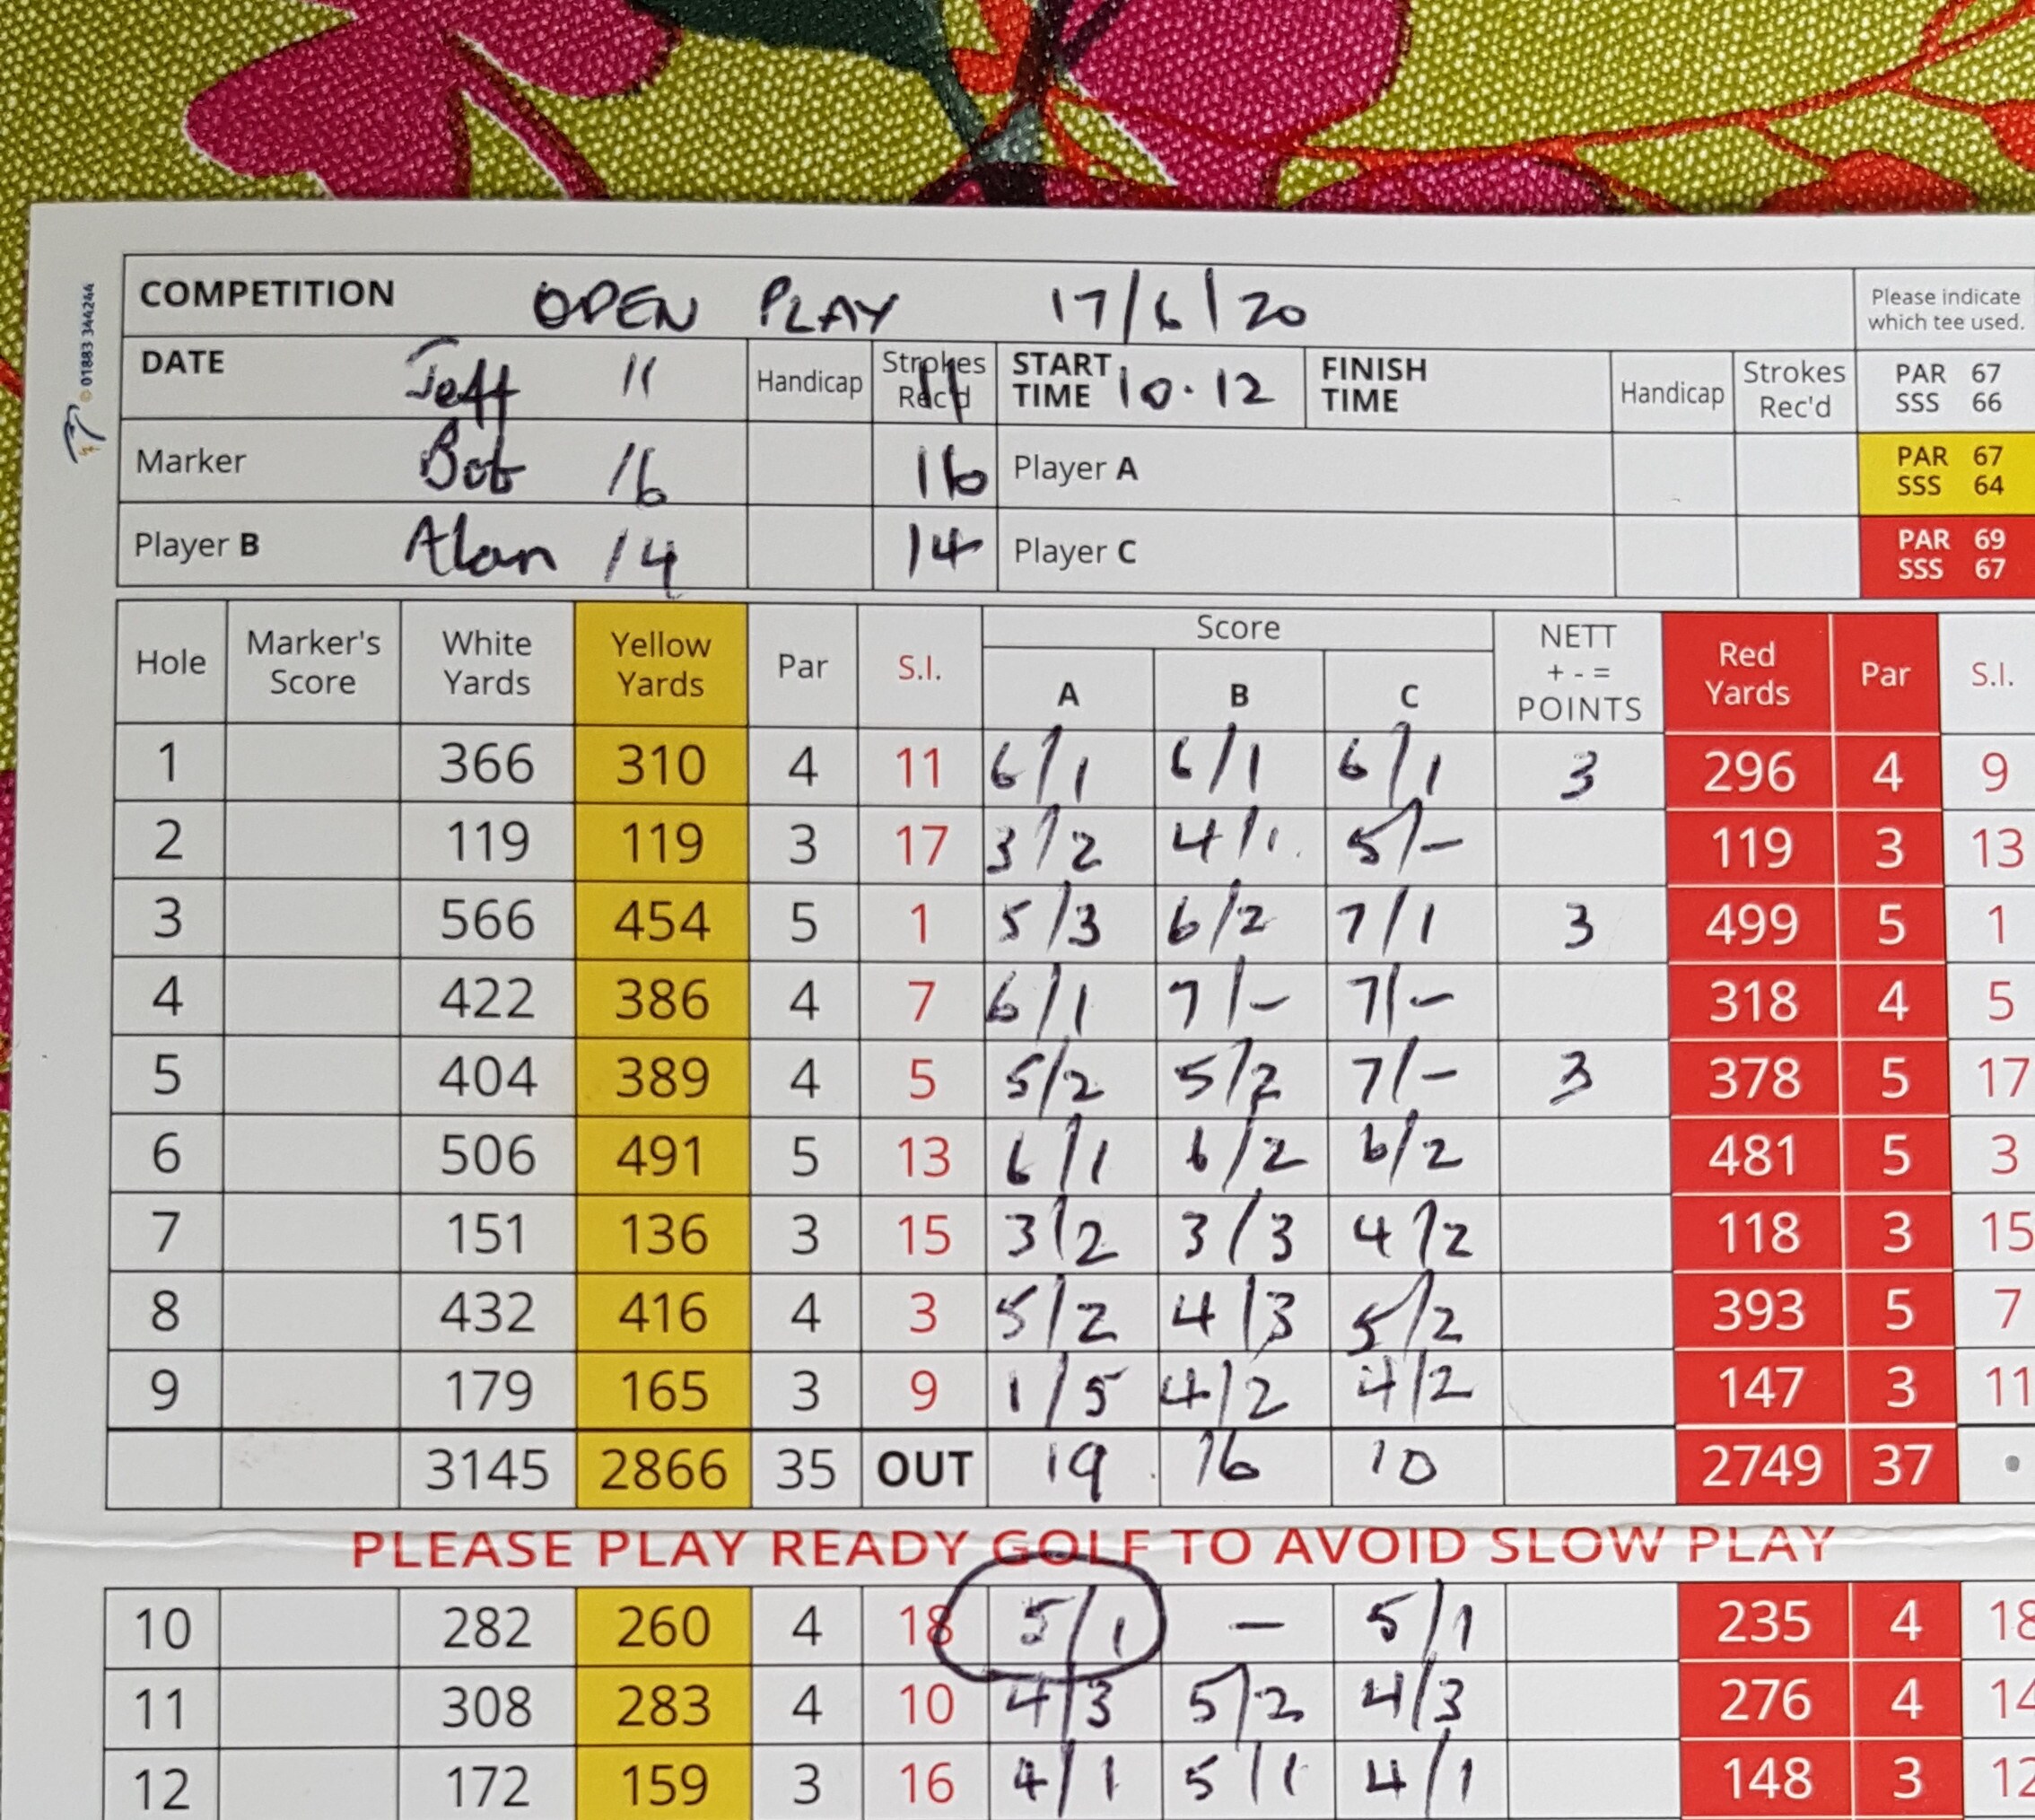 © 01883 344244
COMPETITION OPEN PLAY 17/6/20 Please indicate which tee used.
DATE Jeff 11 Handicap Strokes Rec'd 11 START TIME 10.12 FINISH TIME Handicap Strokes Rec'd PAR 67 SSS 66
Marker Bob 16 16 Player A PAR 67 SSS 64
Player B Alan 14 14 Player C PAR 69 SSS 67
Hole Marker's Score White Yards Yellow Yards Par S.I. Score A B C NETT + - = POINTS Red Yards Par S.I.
1 366 310 4 11 6/1 6/1 6/1 3 296 4 9
2 119 119 3 17 3/2 4/1. 5/- 119 3 13
3 566 454 5 1 5/3 6/2 7/1 3 499 5 1
4 422 386 4 7 6/1 7/- 7/- 318 4 5
5 404 389 4 5 5/2 5/2 7/- 3 378 5 17
6 506 491 5 13 6/1 6/2 6/2 481 5 3
7 151 136 3 15 3/2 3/3 4/2 118 3 15
8 432 416 4 3 5/2 4/3 5/2 393 5 7
9 179 165 3 9 1/5 4/2 4/2 147 3 11
3145 2866 35 OUT 19 16 10 2749 37
PLEASE PLAY READY GOLF TO AVOID SLOW PLAY
10 282 260 4 18 5/1 - 5/1 235 4 18
11 308 283 4 10 4/3 5/2 4/3 276 4 14
12 172 159 3 16 4/1 5/1 4/1 148 3 12